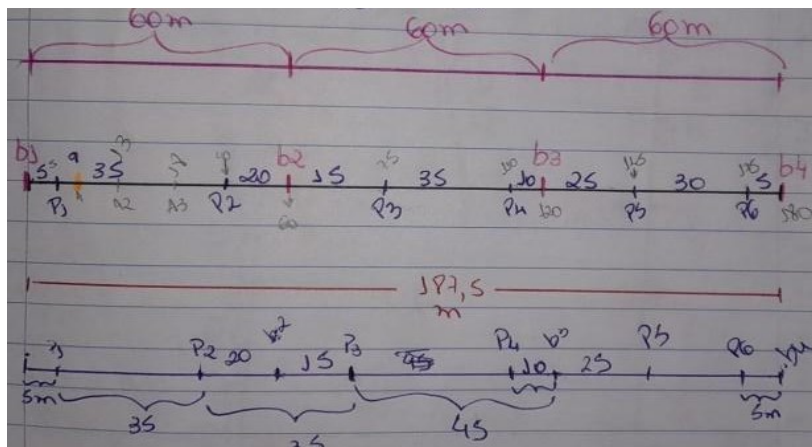 60m 60m 60m
b1 b2 b3 b4
5 35 20 15 35 10 25 30 5
P1 A2 A3 P2 60 P3 P4 120 P5 P6 180
187,5
m
P2 20 b2 15 P3 P4 10 25 P5 P6 b4
5m 35 35 45 5m